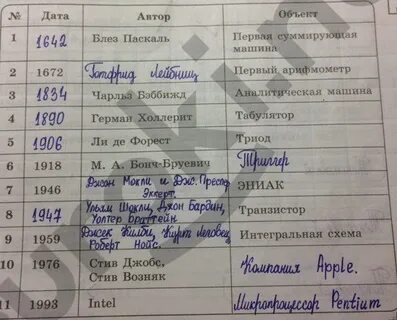 № Дата Автор Объект
1 1642 Блез Паскаль Первая суммирующая
машина
2 1672 Готфрид Лейбниц Первый арифмометр
3 1834 Чарльз Бэббидж Аналитическая машина
4 1890 Герман Холлерит Табулятор
5 1906 Ли де Форест Триод
6 1918 М. А. Бонч-Бруевич Триггер
7 1946 Джон Мокли и Дж. Преспер ЭНИАК
Эккерт.
8 1947 Уильям Шокли, Джон Бардин, Транзистор
Уолтер Браттейн
9 1959 Джек Килби, Курт Леговец, Интегральная схема
Роберт Нойс.
10 1976 Стив Джобс, Компания Apple.
Стив Возняк
11 1993 Intel Микропроцессор Pentium